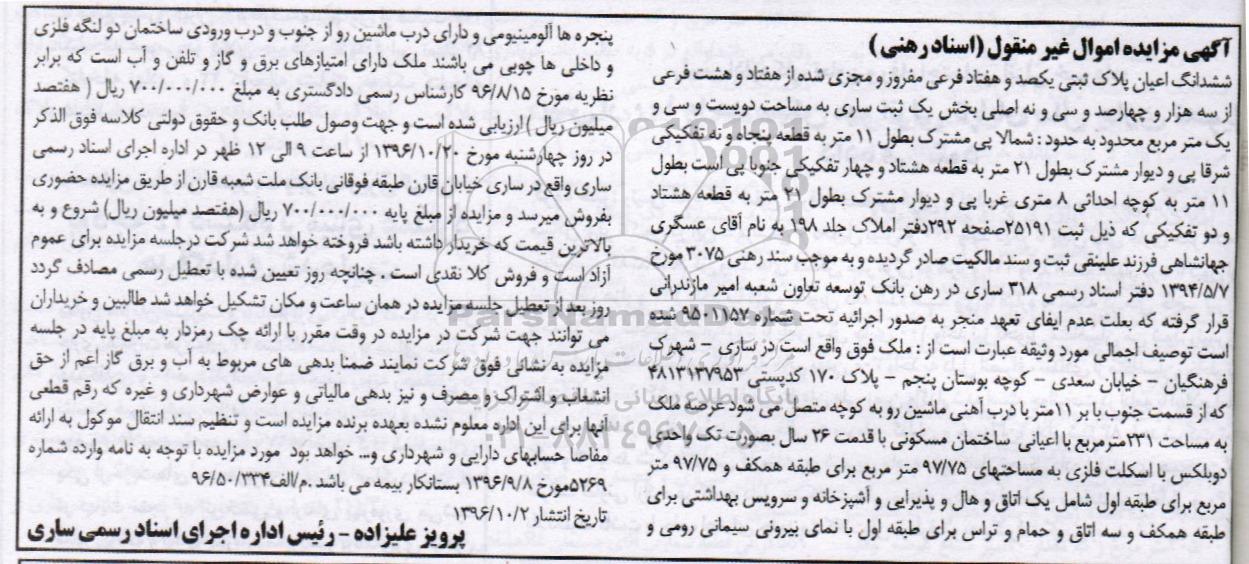 آگهی مزایده اموال غیر منقول (اسناد رهنی)
ششدانگ اعیان پلاک ثبتی یکصد و هفتاد فرعی مفروز و مجزی شده از هفتاد و هشت فرعی
از سه هزار و چهارصد و سی و نه اصلی بخش یک ثبت ساری به مساحت دویست و سی و
یک متر مربع محدود به حدود : شمالا پی مشترک بطول ۱۱ متر به قطعه پنجاه و نه تفکیکی
شرقا پی و دیوار مشترک بطول ۲۱ متر به قطعه هشتاد و چهار تفکیکی جنوبا پی است بطول
۱۱ متر به کوچه احداثی ۸ متری غربا پی و دیوار مشترک بطول ۲۱ متر به قطعه هشتاد
و دو تفکیکی که ذیل ثبت ۲۵۱۹۱صفحه ۲۹۲دفتر املاک جلد ۱۹۸ به نام آقای عسگری
جهانشاهی فرزند علینقی ثبت و سند مالکیت صادر گردیده و به موجب سند رهنی ۳۰۷۵ مورخ
۱۳۹۴/۵/۷ دفتر اسناد رسمی ۳۱۸ ساری در رهن بانک توسعه تعاون شعبه امیر مازندرانی
قرار گرفته که بعلت عدم ایفای تعهد منجر به صدور اجرائیه تحت شماره ۹۵۰۱۱۵۷ شده
است توصیف اجمالی مورد وثیقه عبارت است از : ملک فوق واقع است در ساری - شهرک
فرهنگیان - خیابان سعدی - کوچه بوستان پنجم - پلاک ۱۷۰ کدپستی ۴۸۱۳۱۳۷۹۵۳
که از قسمت جنوب با بر ۱۱متر با درب آهنی ماشین رو به کوچه متصل می شود عرصه ملک
به مساحت ۲۳۱مترمربع با اعیانی ساختمان مسکونی با قدمت ۲۶ سال بصورت تک واحدی
دوبلکس با اسکلت فلزی به مساحتهای ۹۷/۷۵ متر مربع برای طبقه همکف و ۹۷/۷۵ متر
مربع برای طبقه اول شامل یک اتاق و هال و پذیرایی و آشپزخانه و سرویس بهداشتی برای
طبقه همکف و سه اتاق و حمام و تراس برای طبقه اول با نمای بیرونی سیمانی رومی و
پنجره ها آلومینیومی و دارای درب ماشین رو از جنوب و درب ورودی ساختمان دو لنگه فلزی
و داخلی ها چوبی می باشند ملک دارای امتیازهای برق و گاز و تلفن و آب است که برابر
نظریه مورخ ۹۶/۸/۱۵ کارشناس رسمی دادگستری به مبلغ ۷۰۰/۰۰۰/۰۰۰ ریال ( هفتصد
میلیون ریال ) ارزیابی شده است و جهت وصول طلب بانک و حقوق دولتی کلاسه فوق الذکر
در روز چهارشنبه مورخ ۱۳۹۶/۱۰/۲۰ از ساعت ۹ الی ۱۲ ظهر در اداره اجرای اسناد رسمی
ساری واقع در ساری خیابان قارن طبقه فوقانی بانک ملت شعبه قارن از طریق مزایده حضوری
بفروش میرسد و مزایده از مبلغ پایه ۷۰۰/۰۰۰/۰۰۰ ریال (هفتصد میلیون ریال) شروع و به
بالاترین قیمت که خریدار داشته باشد فروخته خواهد شد شرکت درجلسه مزایده برای عموم
آزاد است و فروش کلا نقدی است . چنانچه روز تعیین شده با تعطیل رسمی مصادف گردد
روز بعد از تعطیل جلسه مزایده در همان ساعت و مکان تشکیل خواهد شد طالبین و خریداران
می توانند جهت شرکت در مزایده در وقت مقرر با ارائه چک رمزدار به مبلغ پایه در جلسه
مزایده به نشانی فوق شرکت نمایند ضمنا بدهی های مربوط به آب و برق گاز اعم از حق
انشعاب و اشتراک و مصرف و نیز بدهی مالیاتی و عوارض شهرداری و غیره که رقم قطعی
آنها برای این اداره معلوم نشده بعهده برنده مزایده است و تنظیم سند انتقال موکول به ارائه
مفاصا حسابهای دارایی و شهرداری و... خواهد بود مورد مزایده با توجه به نامه وارده شماره
۵۲۶۹مورخ ۱۳۹۶/۹/۸ بستانکار بیمه می باشد .م/الف۹۶/۵۰/۳۳۴
تاریخ انتشار ۱۳۹۶/۱۰/۲
پرویز علیزاده - رئیس اداره اجرای اسناد رسمی ساری
ParsNamadData